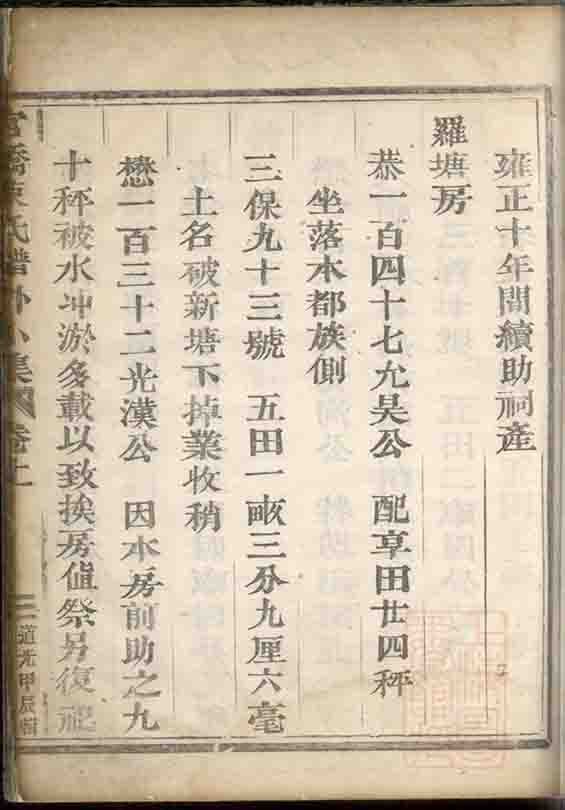 雍正十年間續助祠產
羅塘房
恭一百四十七允昊公　配享田廿四秤
坐落本都族側
三保九十三號　五田一畝三分九厘六毫
土名破新塘下掉業收稍
懋一百三十二光漢公　因本房前助之九
十秤被水冲淤多載以致挨房值祭另復祀
橋陳氏譜外小集　卷上
三　道光甲辰